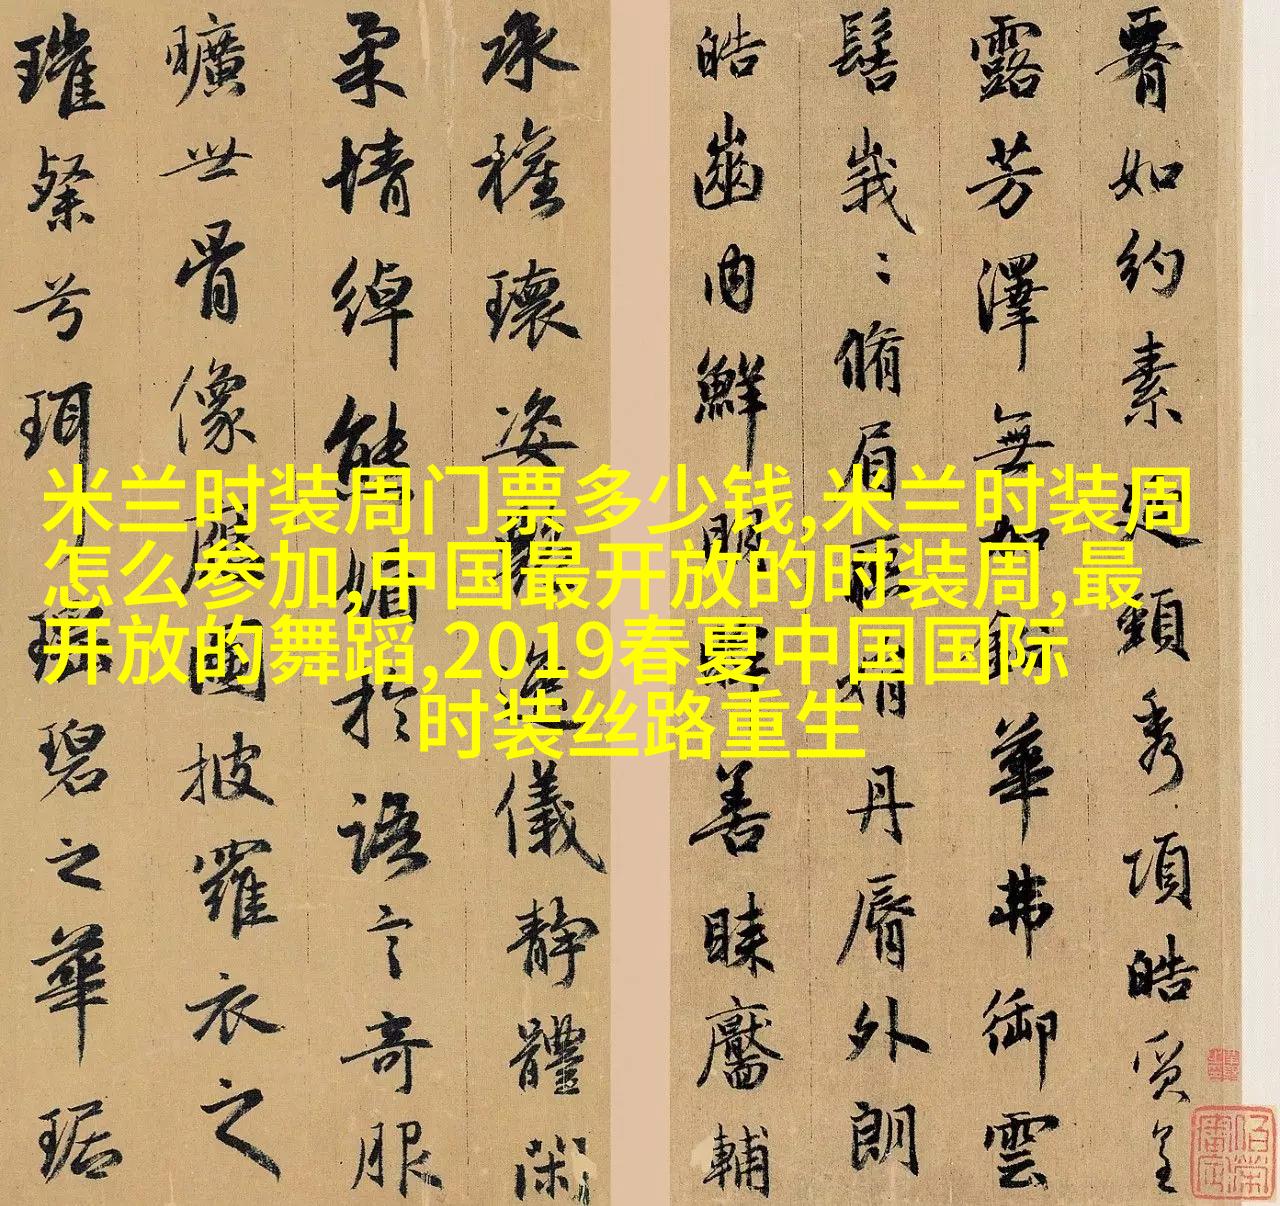 米兰时装周门票多少钱,米兰时装周
怎么参加,中国最开放的时装周,最
开放的舞蹈,2019春夏中国国际
时装丝路重生
如約素延頸秀項皓質呈
露芳澤無加鉛華弗御雲
髻峩〻脩眉聯娟丹脣外朗
皓齒内鮮明眸善睞靨輔
承權瓌姿豔逸儀靜體閑
柔情綽態媚於語言奇服
曠世骨像應圖披羅衣之
璀粲兮珥瑤碧之華琚